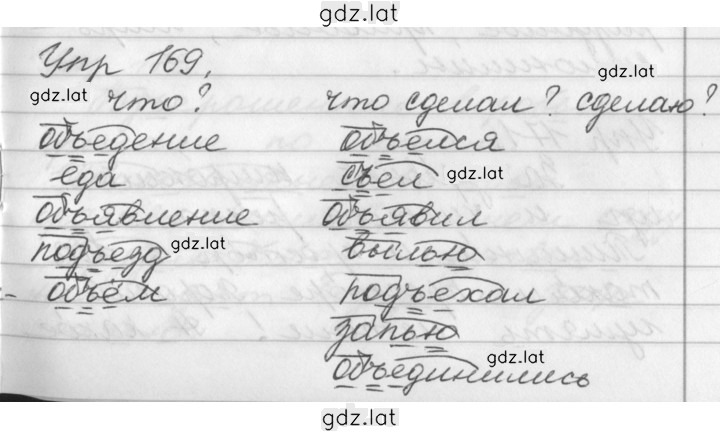 gdz.lat
Упр 169.
gdz.lat
gdz.lat что? что сделал? сделаю?
объедение объелся
еда съел gdz.lat
объявление объявил
подъезд gdz.lat выпью
объём подъехал
запью
объединились gdz.lat
gdz.lat